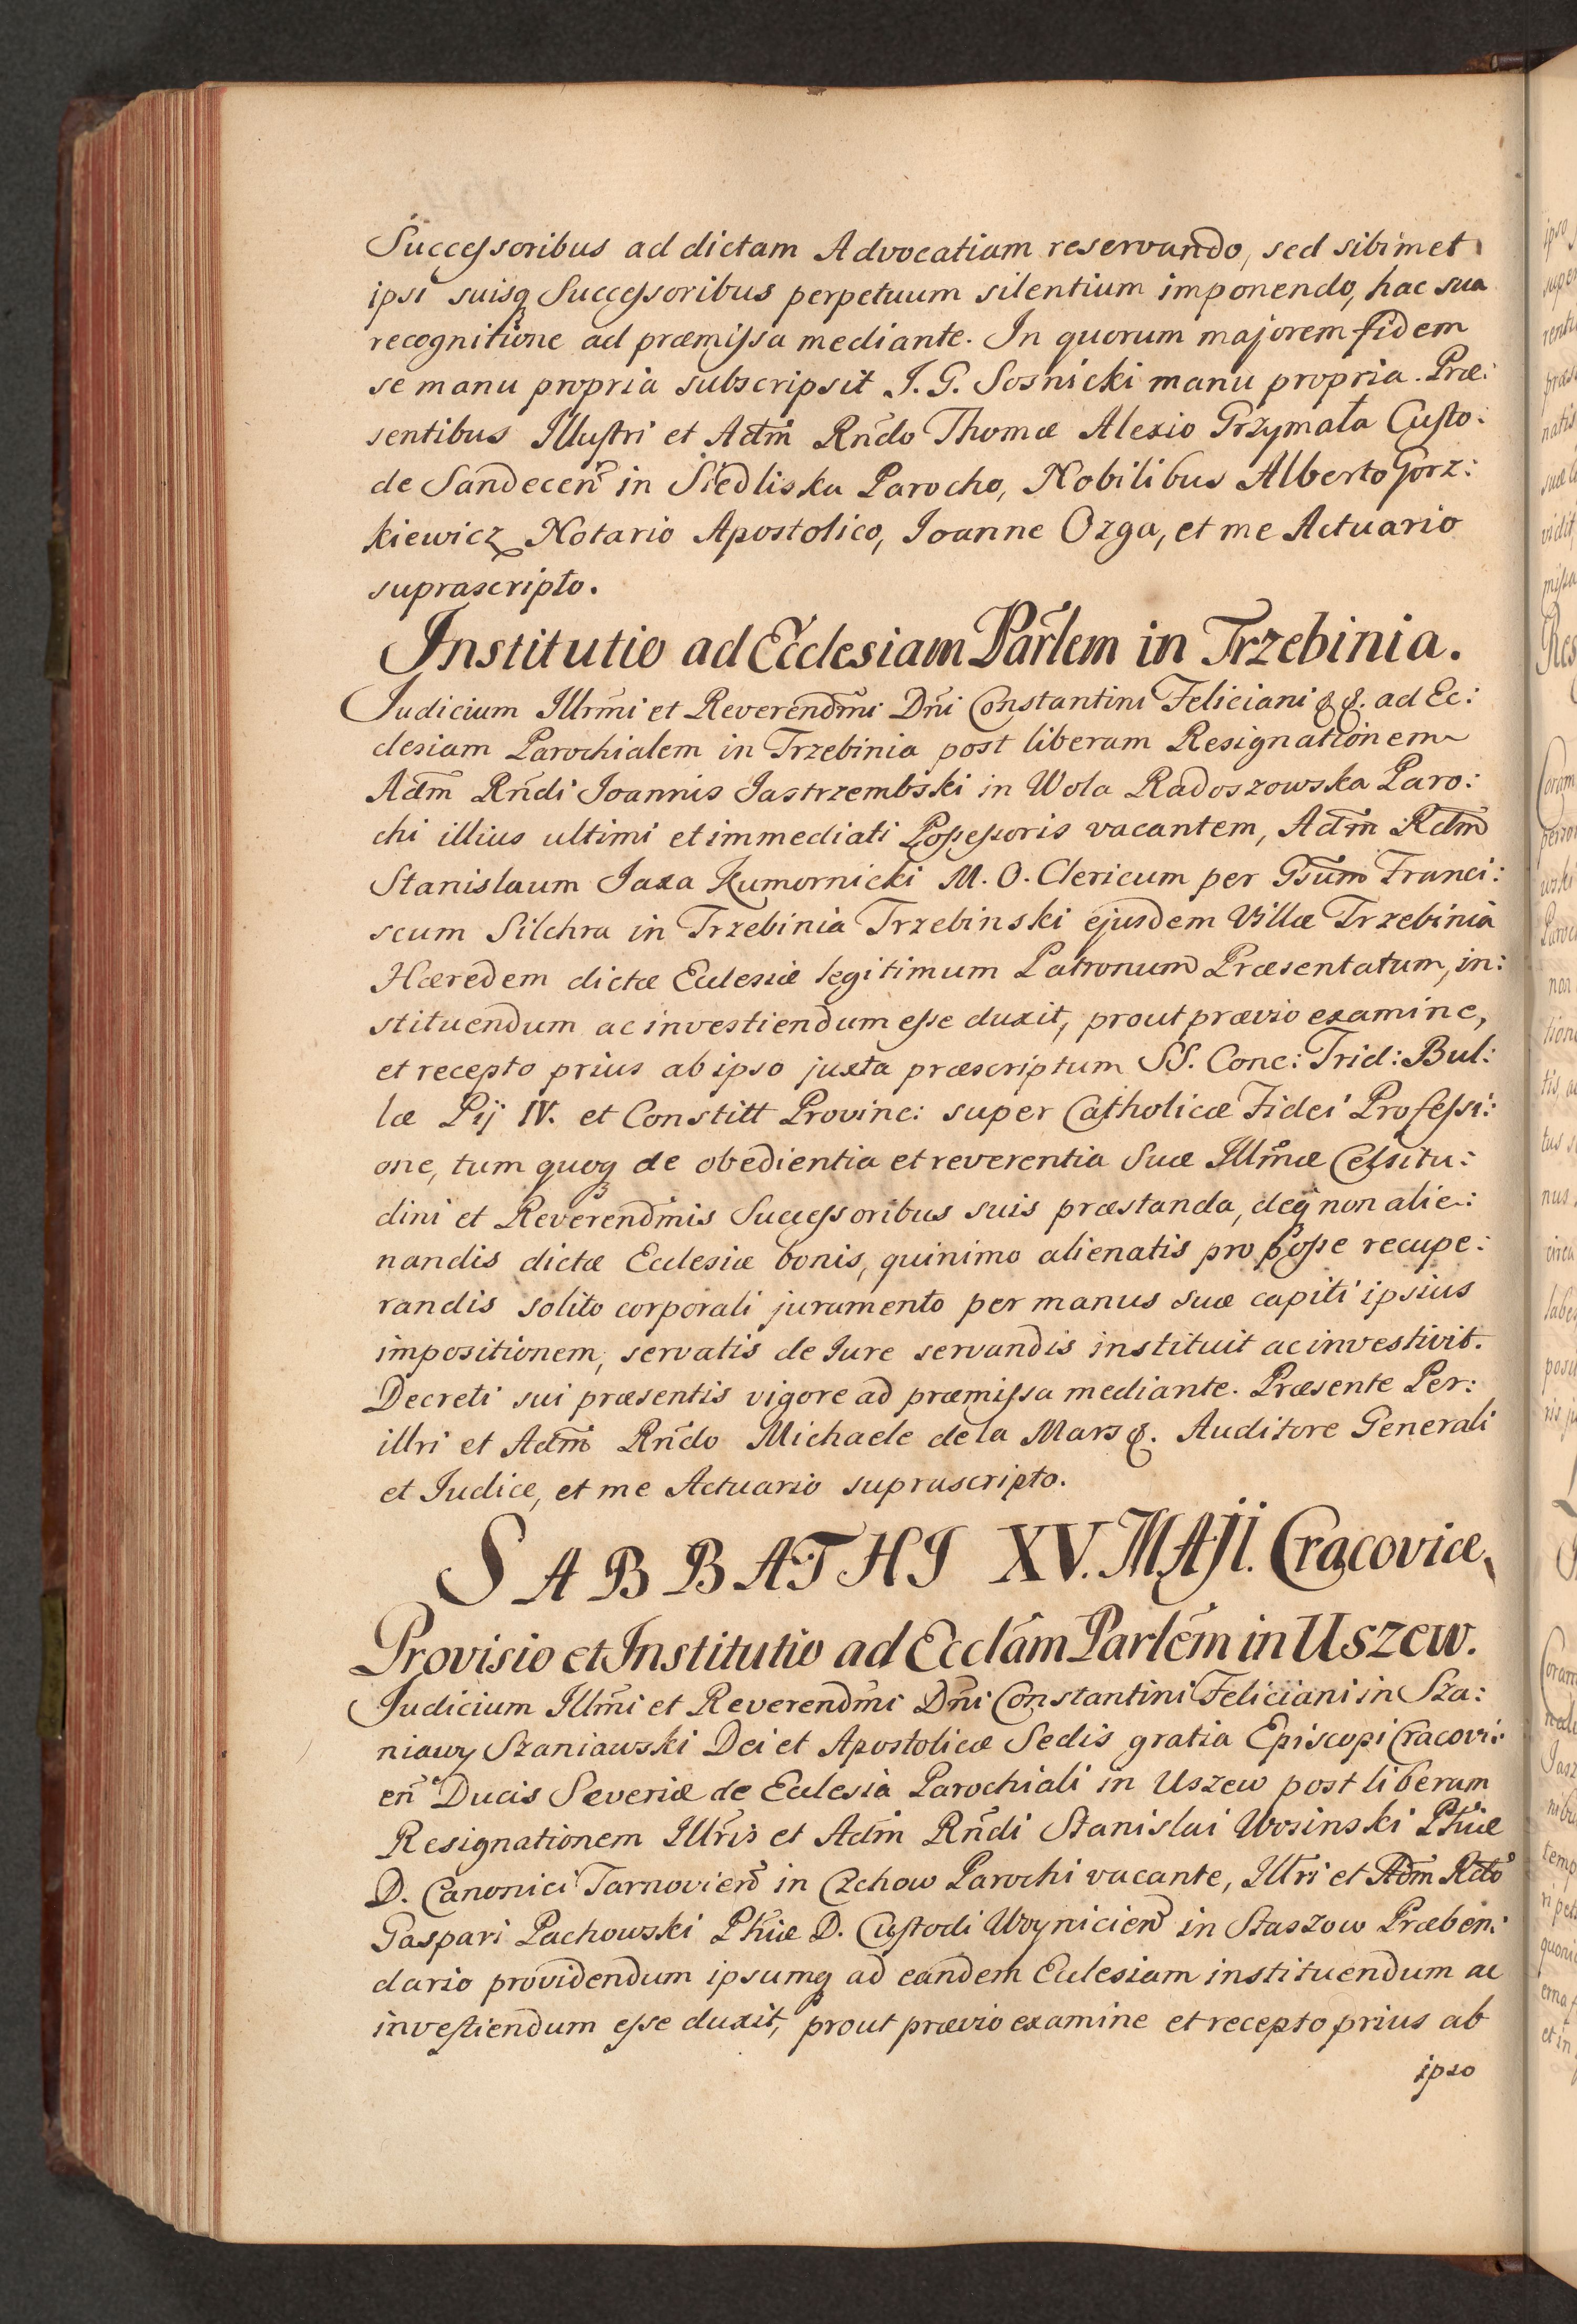 Successoribus ad dictam Advocatiam reservando, sed sibimet
ipsi suisq Successoribus perpetuum silentium imponendo, hac sua
recognitione ad præmissa mediante. In quorum majorem fidem
se manu propria subscripsit J. G. Sosnicki manu propria. Præ:
sentibus Illustri et Adm̃ Rñdo Thomæ Alexio Grzymała Custo:
de Sandeceñ in Siedliska Parocho, Nobilibus Alberto Gorz:
kiewicz Notario Apostolico, Joanne Ozga, et me Actuario
suprascripto.
Institutio ad Ecclesiam Parlem in Trzebinia.
Judicium Illrm̃i et Reverendm̃i Dñi Constantini Feliciani &. &. ad Ec:
clesiam Parochialem in Trzebinia post liberam Resignationem
Adm̃ Rñdi Joannis Jastrzembski in Wola Radoszowska Paro:
chi illius ultimi et immediati Possessoris vacantem, Adm̃ Rdm̃
Stanislaum Jaxa Kumornicki M. O. Clericum per Gsum̃ Franci:
scum Silchra in Trzebinia Trzebinski ejusdem Villæ Trzebinia
Hæredem dictæ Ecclesiæ legitimum Patronum Præsentatum, in:
stituendum ac investiendum esse duxit, prout prævio examine,
et recepto prius ab ipso juxta præscriptum SS. Conc: Trid: Bul:
læ Pij IV. et Constitt Provinc: super Catholicæ Fidei Professi:
one, tum quoq de obedientia et reverentia Suæ Illm̃æ Celsitu:
dini et Reverendm̃is Successoribus suis præstanda, deq non alie:
nandis dictæ Ecclesiæ bonis, quinimo alienatis pro posse recupe:
randis solito corporali juramento per manus suæ capiti ipsius
impositionem, servatis de Jure servandis instituit ac investivit.
Decreti sui præsentis vigore ad præmissa mediante. Præsente Per:
illri et Adm̃ Rñdo Michaele de la Mars &. Auditore Generali
et Judice, et me Actuario suprascripto.
SABBATHI XV. MAJI. Cracoviæ
Provisio et Institutio ad Ecclãm Parlem̃ in Uszew.
Judicium Illm̃i et Reverendm̃i Dñi Constantini Feliciani in Sza:
niawy Szaniawski Dei et Apostolicæ Sedis gratia Episcopi Cracovi:
eñ Ducis Severiæ de Ecclesia Parochiali in Uszew post liberam
Resignationem Illr̃is et Adm̃ Rñdi Stanislai Wosinski Phiæ
D. Canonici Tarnovieñ in Czchow Parochi vacante, Illri et Adm̃ Rdo
Gaspari Pachowski Phiæ D. Custodi Woynicieñ in Staszow Præben:
dario providendum ipsumq ad eandem Ecclesiam instituendum ac
investiendum esse duxit, prout prævio examine et recepto prius ab
ipso